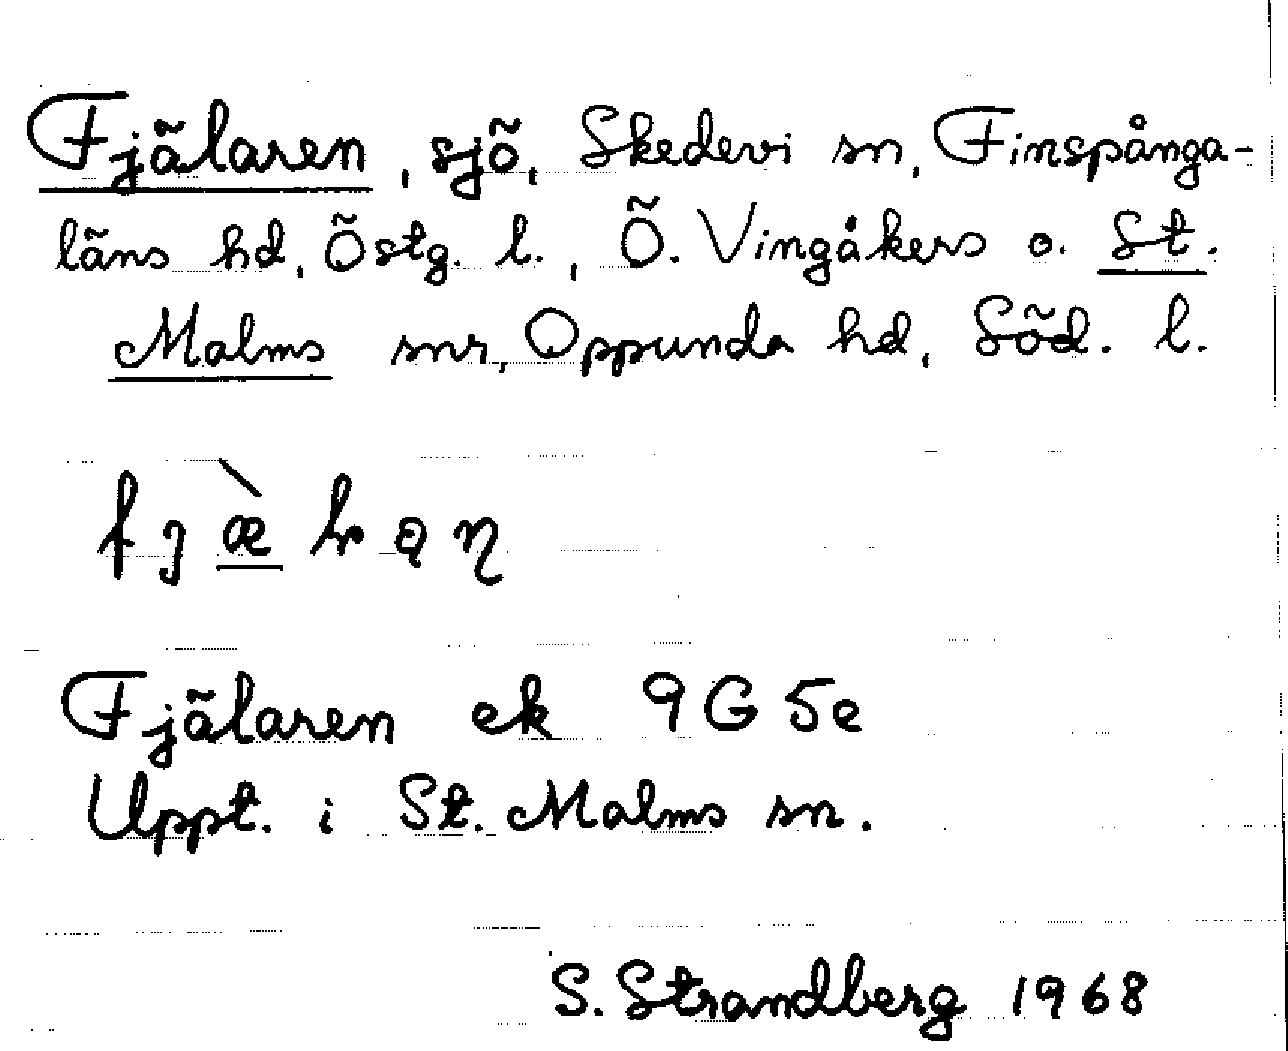 Fjälaren, sjö, Skedevi sn, Finspånga-
läns hd, Östg. l., Ö. Vingåkers o. St.
Malms snr, Oppunda hd, Söd. l.
Fjälaren ek 9G 5e
Uppt. i St. Malms sn.
S. Strandberg 1968